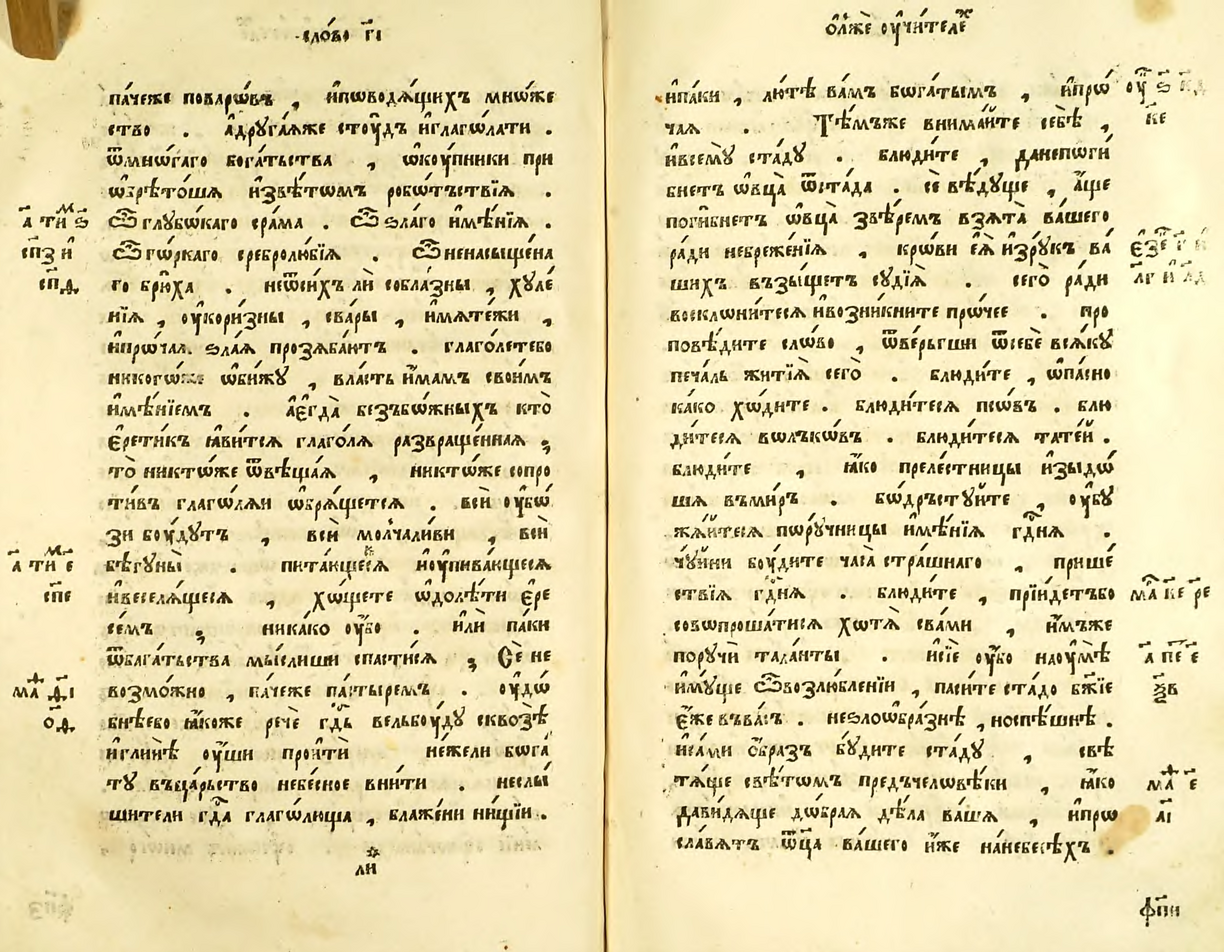 слово гі
па́чеже поварѡвъ , и҆пѡводѧ́щихъ мнѡ́же
ство . а҆дрꙋга́ѧже стоу́дъ и҆глагѡлати .
ѿмнѡ́гаго бога́тьства , ѡ҆коу́пники при
ѡ҆брѣто́шѧ и҆звѣ́тѡмъ робѡ́тъствїѧ .
ѿ глꙋбѡ́каго сра́ма . ѿ ѕла́го и҆мѣ́нїѧ .
ѿ гѡ́ркаго сребролю́бїѧ . ѿ ненасы́щена
го брю́ха . неѿси́хъ ли собла́зны , хꙋле́
нїѧ , оу҆кори́зны , сва́ры , и҆мѧте́жи ,
и҆прѡ́чаѧ ѕла́ѧ прозѧба́ютъ . глаго́летебо
никогѡ́же ѡ҆би́жꙋ , вла́сть и҆́мамъ свои́мъ
и҆мѣ́нїемъ . а҆е҆гда̀ безъбѡ́жныхъ кто̀
е҆рети́къ ꙗ҆ви́тсѧ глаго́лѧ развраще́ннаѧ ;
то̀ никто́же ѿвѣща́ѧ , никто́же сопро
ти́въ глагѡ́лѧи ѡ҆брѧ́щетсѧ . всѝ оу҆бѡ́
зи боу́дꙋтъ , всѝ молчали́ви , всѝ
бѣгꙋны̀ . пита́ющеесѧ и҆оу҆пива́ющеесѧ
и҆веселѧ́щеесѧ , хѡ́щете ѡ҆долѣ́ти е҆ре
се́мъ ; ника́ко оу҆́бо . и҆лѝ па́ки
ѿбага́тьства мы́слиши спасти́сѧ ; Се́ не
возмо́жно , па́чеже па́стыремъ . оу҆дѡ́
бнѣебо ꙗ҆́коже речѐ гдⷭ҇ь вельбоу́дꙋ сквозѣ̀
и҆глинѣ̀ оу҆́ши проитѝ нежели бѡга́
тꙋ въца́рьство небе́сное вни́ти . неслы́
шители гдⷭ҇а глагѡ́люща , блаже́ни ни́щїи .
ли
а҃ тим ѕ҃
сп҃з и҃
сп҃д
а҃ тим е҃
сп҃е
маѳ д҃і
о҃д
ѻл҃же оу҆чи́телех
и҆па́ки , лю́тѣ ва́мъ бѡга́тымъ , и҆прѡ́
чаѧ . Тѣ́мъже внима́йте себѣ̀ ,
и҆всемꙋ̀ ста́дꙋ . блюди́те , данепѡги́
бнетъ ѡ҆вца̀ ѿста́да . сѐ вѣ́дꙋще , а҆́ще
поги́бнетъ ѡ҆вца̀ звѣ́ремъ взѧ́та ва́шего
ра́ди небреже́нїѧ , крѡ́ви е҆ѧ̀ и҆зрꙋ́къ ва́
шихъ взы́щетъ сꙋдїѧ̀ . сего̀ ра́ди
восклѡни́тесѧ и҆возни́кните прѡ́чее . про
повѣ́дите сло́во , ѿве́рьгши ѿсебѐ всѧ́кꙋ
печа́ль житїѧ̀ сего̀ . блюди́те , ѡ҆па́сно
ка́ко хѡ́дите . блюди́тесѧ псѡ́въ . блю
ди́тесѧ вѡлъко́въ . блюди́тесѧ тате́й .
блюди́те , ꙗ҆́ко преле́стницы и҆зыдѡ́
шѧ въми́ръ . бѡ́дръстꙋйте , оу҆́бꙋ
жа́йтесѧ пѡрꙋ́чницы и҆мѣ́нїѧ гдⷭ҇нѧ .
чꙋ́йни боу́дите часа̀ стра́шнаго , прише́
ствїѧ гдⷭ҇нѧ . блюди́те , прїи́детъбо
совѡпроша́тисѧ хѡтѧ̀ сва́ми , и҆́мъже
порꙋчѝ тала́нты . и҆сїѐ оу҆́бо наоу҆мѣ̀
и҆мꙋ́ще ѿ возлю́бленїи , паси́те ста́до бж҃їе
е҆́же въва́съ . неѕлоѡ҆бра́знѣ , носпѣ́шнѣ .
и҆са́ми ѻ҆́бразъ бꙋ́дите ста́дꙋ , свѣ́
тѧще свѣ́томъ предъчеловѣ́ки , ꙗ҆́ко
дави́дѧще дѡ́браѧ дѣ́ла ва́шѧ , и҆про
сла́вѧтъ ѿц҃а̀ ва́шего и҆́же нанебесѣ́хъ .
к҃е
л҃г и҃ л҃д
маѳ к҃е
а҃ пе е҃
маѳ е҃
а҃і
фп҃и